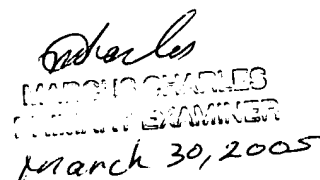 MCharles
MARCUS CHARLES
PRIMARY EXAMINER
March 30, 2005